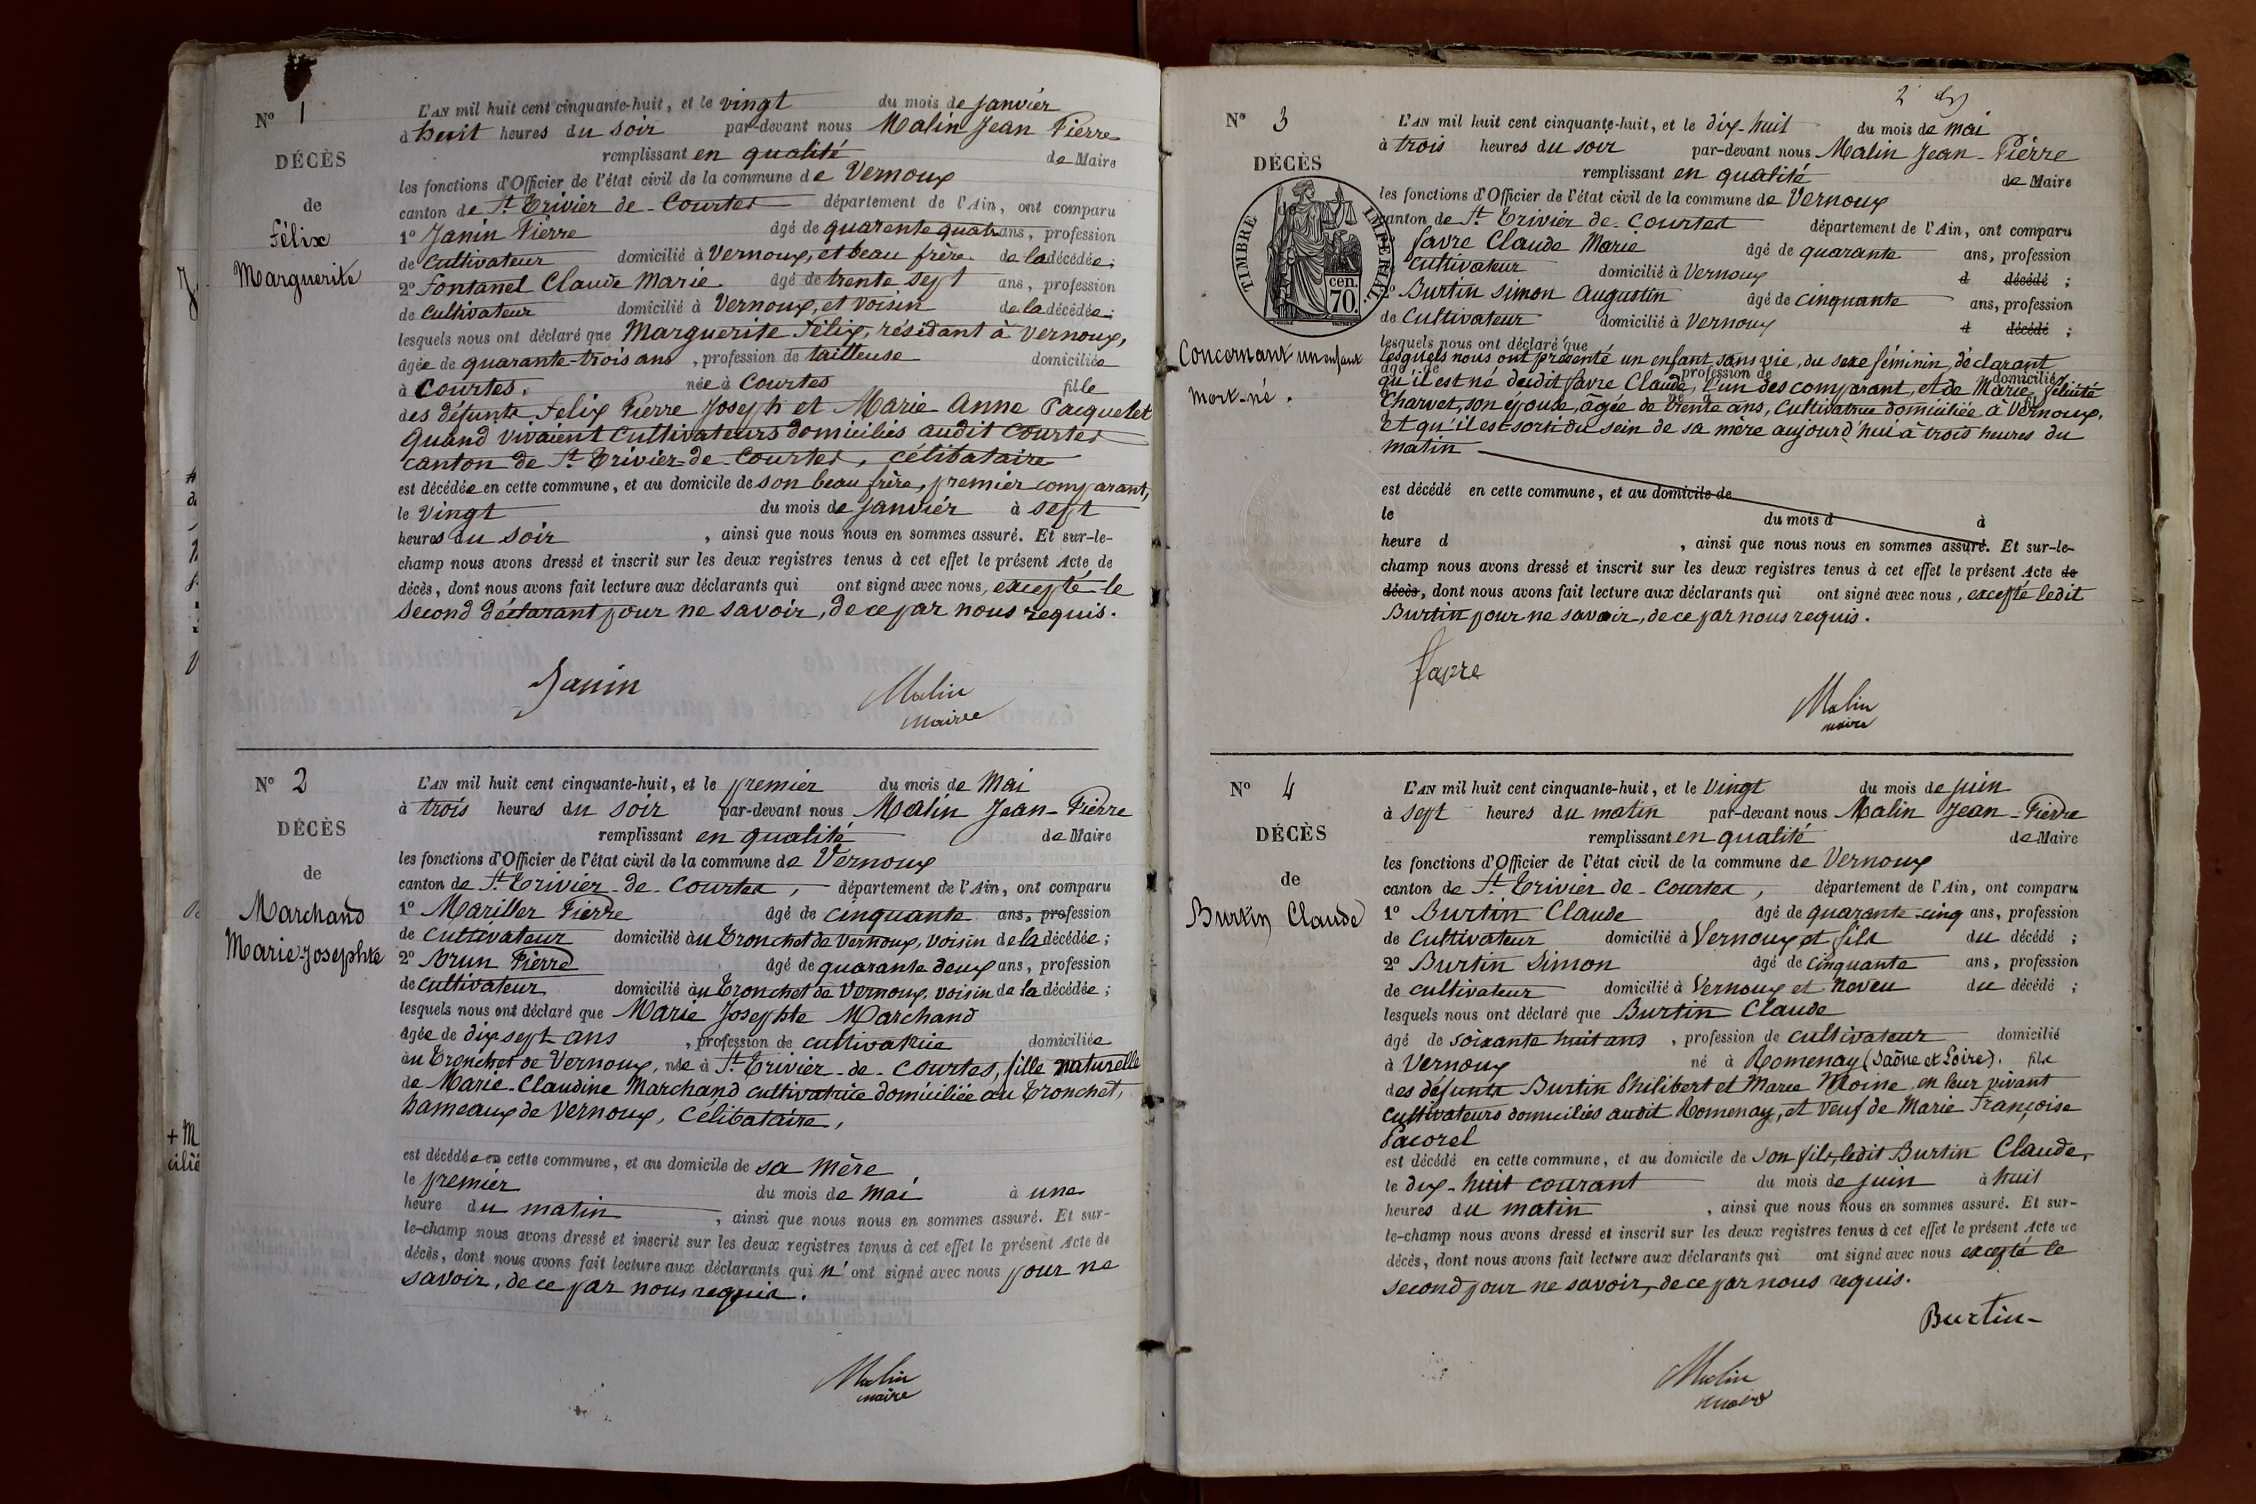 N° 1
DÉCÈS
de
Félix
Marguerite
L'AN mil huit cent cinquante-huit, et le vingt du mois de janvier
à huit heures du soir par-devant nous Malin Jean Pierre
remplissant en qualité de Maire
les fonctions d'Officier de l'état civil de la commune de Vernoux
canton de St Trivier-de-Courtes département de l'Ain, ont comparu
1° Janin Pierre âgé de quarente quatr ans, profession
de cultivateur domicilié à Vernoux, et beau frère de la décédée;
2° Fontanel Claude Marie âgé de trente sept ans, profession
de cultivateur domicilié à Vernoux, et voisin de la décédée;
lesquels nous ont déclaré que Marguerite Félix, résidant à Vernoux,
âgée de quarante-trois ans, profession de tailleuse domiciliée
à Courtes, née à Courtes fille
des défunts Felix Pierre Joseph et Marie Anne Pacquelet
quand vivaient cultivateurs domiciliés audit Courtes
canton de St Trivier-de-Courtes, célibataire
est décédée en cette commune, et au domicile de son beau frère, premier comparant,
le vingt du mois de janvier à sept
heures du soir, ainsi que nous nous en sommes assuré. Et sur-le-
champ nous avons dressé et inscrit sur les deux registres tenus à cet effet le présent Acte de
décès, dont nous avons fait lecture aux déclarants qui ont signé avec nous, excepté le
second déclarant pour ne savoir, de ce par nous requis.
Janin Malin
maire
N° 2
DÉCÈS
de
Marchand
Marie-Josephte
L'AN mil huit cent cinquante-huit, et le premier du mois de Mai
à trois heures du soir par-devant nous Malin Jean-Pierre
remplissant en qualité de Maire
les fonctions d'Officier de l'état civil de la commune de Vernoux
canton de St Trivier-de-Courtes, département de l'Ain, ont comparu
1° Mariller Pierre âgé de cinquante ans, profession
de cultivateur domicilié au Tronchet de Vernoux, voisin de la décédée;
2° Brun Pierre âgé de quarante deux ans, profession
de cultivateur domicilié au Tronchet de Vernoux, voisin de la décédée;
lesquels nous ont déclaré que Marie Josephte Marchand
âgée de dix sept ans, profession de cultivatrice domiciliée
au Tronchet de Vernoux, née à St Trivier-de-Courtes, fille naturelle
de Marie-Claudine Marchand cultivatrice domiciliée au Tronchet,
hameaux de Vernoux, célibataire,
est décédée en cette commune, et au domicile de sa mère
le premier du mois de mai à une
heure du matin, ainsi que nous nous en sommes assuré. Et sur-
le-champ nous avons dressé et inscrit sur les deux registres tenus à cet effet le présent Acte de
décès, dont nous avons fait lecture aux déclarants qui n'ont signé avec nous pour ne
savoir, de ce par nous requis.
Malin
maire
2
N° 3
DÉCÈS
TIMBRE IMPÉRIAL
70 cen.
Concernant un enfant
mort-né.
L'AN mil huit cent cinquante-huit, et le dix-huit du mois de mai
à trois heures du soir par-devant nous Malin Jean-Pierre
remplissant en qualité de Maire
les fonctions d'Officier de l'état civil de la commune de Vernoux
canton de St Trivier-de-Courtes département de l'Ain, ont comparu
Favre Claude Marie âgé de quarante ans, profession
cultivateur domicilié à Vernoux d décédé;
2° Burtin Simon Augustin âgé de cinquante ans, profession
de cultivateur domicilié à Vernoux d décédé;
lesquels nous ont déclaré que
lesquels nous ont présenté un enfant sans vie, du sexe féminin, déclarant
âgé de profession de domicilié
qu'il est né dudit Favre Claude, l'un des comparant, et de Marie Félicité
Charvet, son épouse, âgée de trente ans, cultivatrice domiciliée à Vernoux,
et qu'il est sorti du sein de sa mère aujourd'hui à trois heures du
matin
est décédé en cette commune, et au domicile de
le du mois d à
heure d, ainsi que nous nous en sommes assuré. Et sur-le-
champ nous avons dressé et inscrit sur les deux registres tenus à cet effet le présent Acte de
décès, dont nous avons fait lecture aux déclarants qui ont signé avec nous, excepté ledit
Burtin pour ne savoir, de ce par nous requis.
Favre
Malin
maire
N° 4
DÉCÈS
de
Burtin Claude
L'AN mil huit cent cinquante-huit, et le Vingt du mois de juin
à sept heures du matin par-devant nous Malin Jean-Pierre
remplissant en qualité de Maire
les fonctions d'Officier de l'état civil de la commune de Vernoux
canton de St Trivier-de-Courtes, département de l'Ain, ont comparu
1° Burtin Claude âgé de quarante-cinq ans, profession
de cultivateur domicilié à Vernoux et fils du décédé;
2° Burtin Simon âgé de cinquante ans, profession
de cultivateur domicilié à Vernoux et noveu du décédé;
lesquels nous ont déclaré que Burtin Claude
âgé de soixante huit ans, profession de cultivateur domicilié
à Vernoux né à Romenay (Saône et Loire). fils
des défunts Burtin Philibert et Marie Moine en leur vivant
cultivateurs domiciliés audit Romenay, et veuf de Marie Françoise
Pacorel
est décédé en cette commune, et au domicile de son fils, ledit Burtin Claude,
le dix-huit courant du mois de juin à huit
heures du matin, ainsi que nous nous en sommes assuré. Et sur-
le-champ nous avons dressé et inscrit sur les deux registres tenus à cet effet le présent Acte de
décès, dont nous avons fait lecture aux déclarants qui ont signé avec nous excepté le
second pour ne savoir, de ce par nous requis.
Burtin
Malin
maire